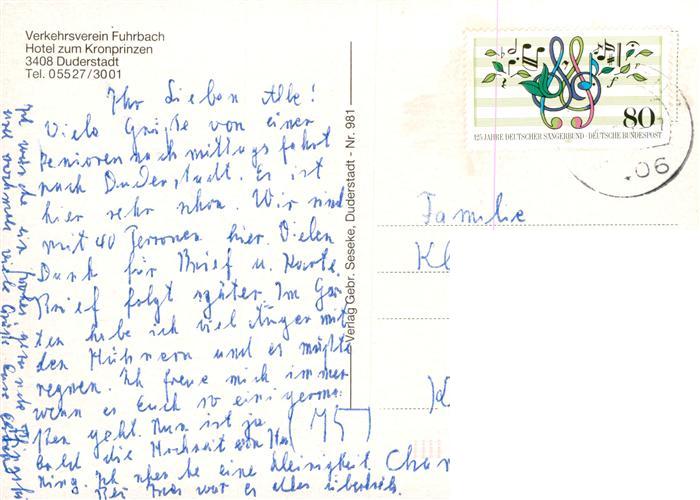 Verkehrsverein Fuhrbach
Hotel zum Kronprinzen
3408 Duderstadt
Tel. 05527/3001
Ihr Lieben Alle!
Viele Grüße von einer
Seniorennachmittagsfahrt
nach Duderstadt. Es ist
hier sehr schön. Wir sind
mit 40 Personen hier. Vielen
Dank für Brief u. Karte.
Brief folgt später. Im Gar
ten habe ich viel Ärger mit
den Hühnern und es müßte
regnen. Ich freue mich immer
wenn es Euch so einigerma-
ßen geht. Nun ist ja
bald die Hochzeit von
ning. Ich eine Kleinigkeit.
Bei war es alles
Ich wünsche ein frohes gesundes Pfingstfest
und nochmals viele Grüße Eure
Verlag Gebr. Seseke, Duderstadt - Nr. 981
80
125 JAHRE DEUTSCHER SÄNGERBUND · DEUTSCHE BUNDESPOST
.06
Familie
Kl
Char